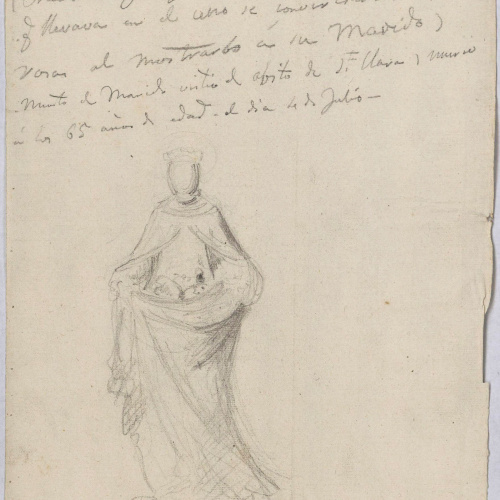 q̃ llevava en el cesto se
rosas al mostrarlo á su Marido)
Muerto el Marido vistió el abito de Sta Clara y murio
á los 65 años de edad - el dia 4 de Julio -